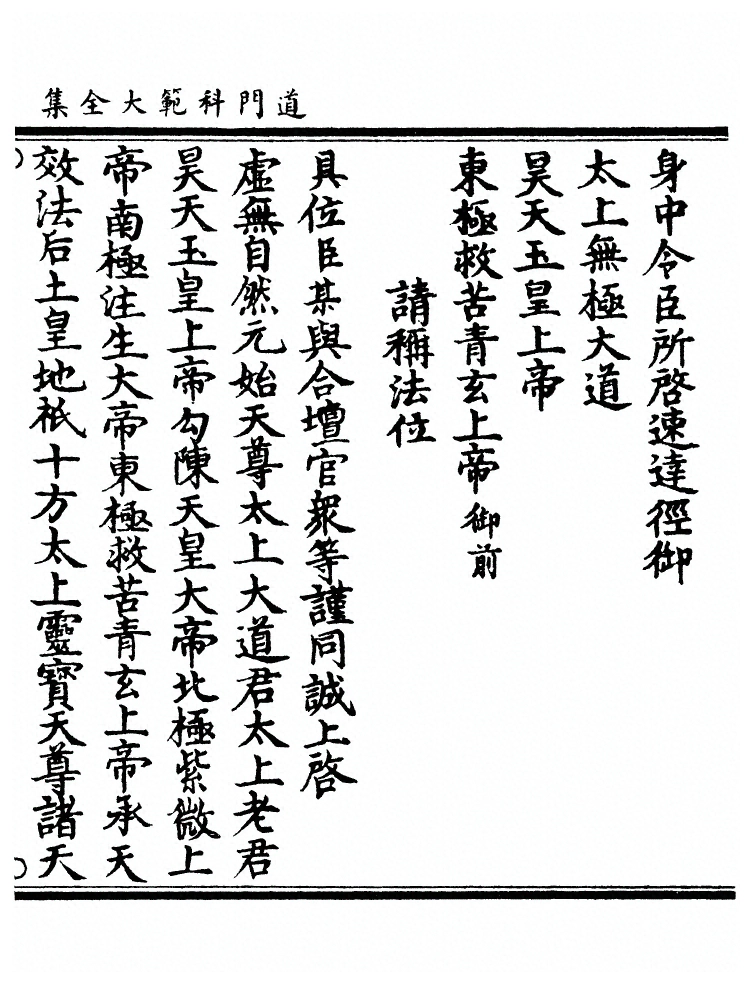 道門科範大全集
身中令臣所啓速達徑御
太上無極大道
昊天玉皇上帝
東極救苦青玄上帝御前
請稱法位
具位臣某與合壇官衆等謹同誠上啓
虛無自然元始天尊太上大道君太上老君
昊天玉皇上帝勾陳天皇大帝北極紫微上
帝南極注生大帝東極救苦青玄上帝承天
效法后土皇地祇十方太上靈寶天尊諸天